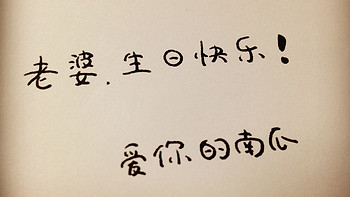 老婆.生日快乐!
爱你的南瓜